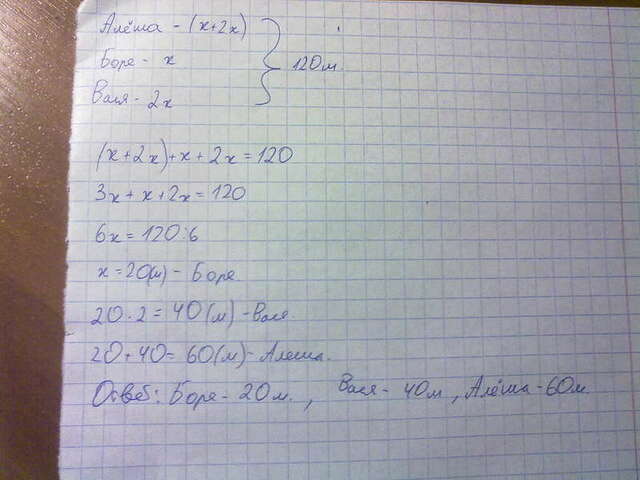 Алёша - (x+2x)
Боре - x
Вася - 2x
120м.
(x+2x)+x+2x=120
3x+x+2x=120
6x=120:6
x=20(м) - Боре
20·2=40(м) - Вася.
20+40=60(м) - Алеша.
Ответ: Боре - 20м., Вася - 40м, Алёша - 60м